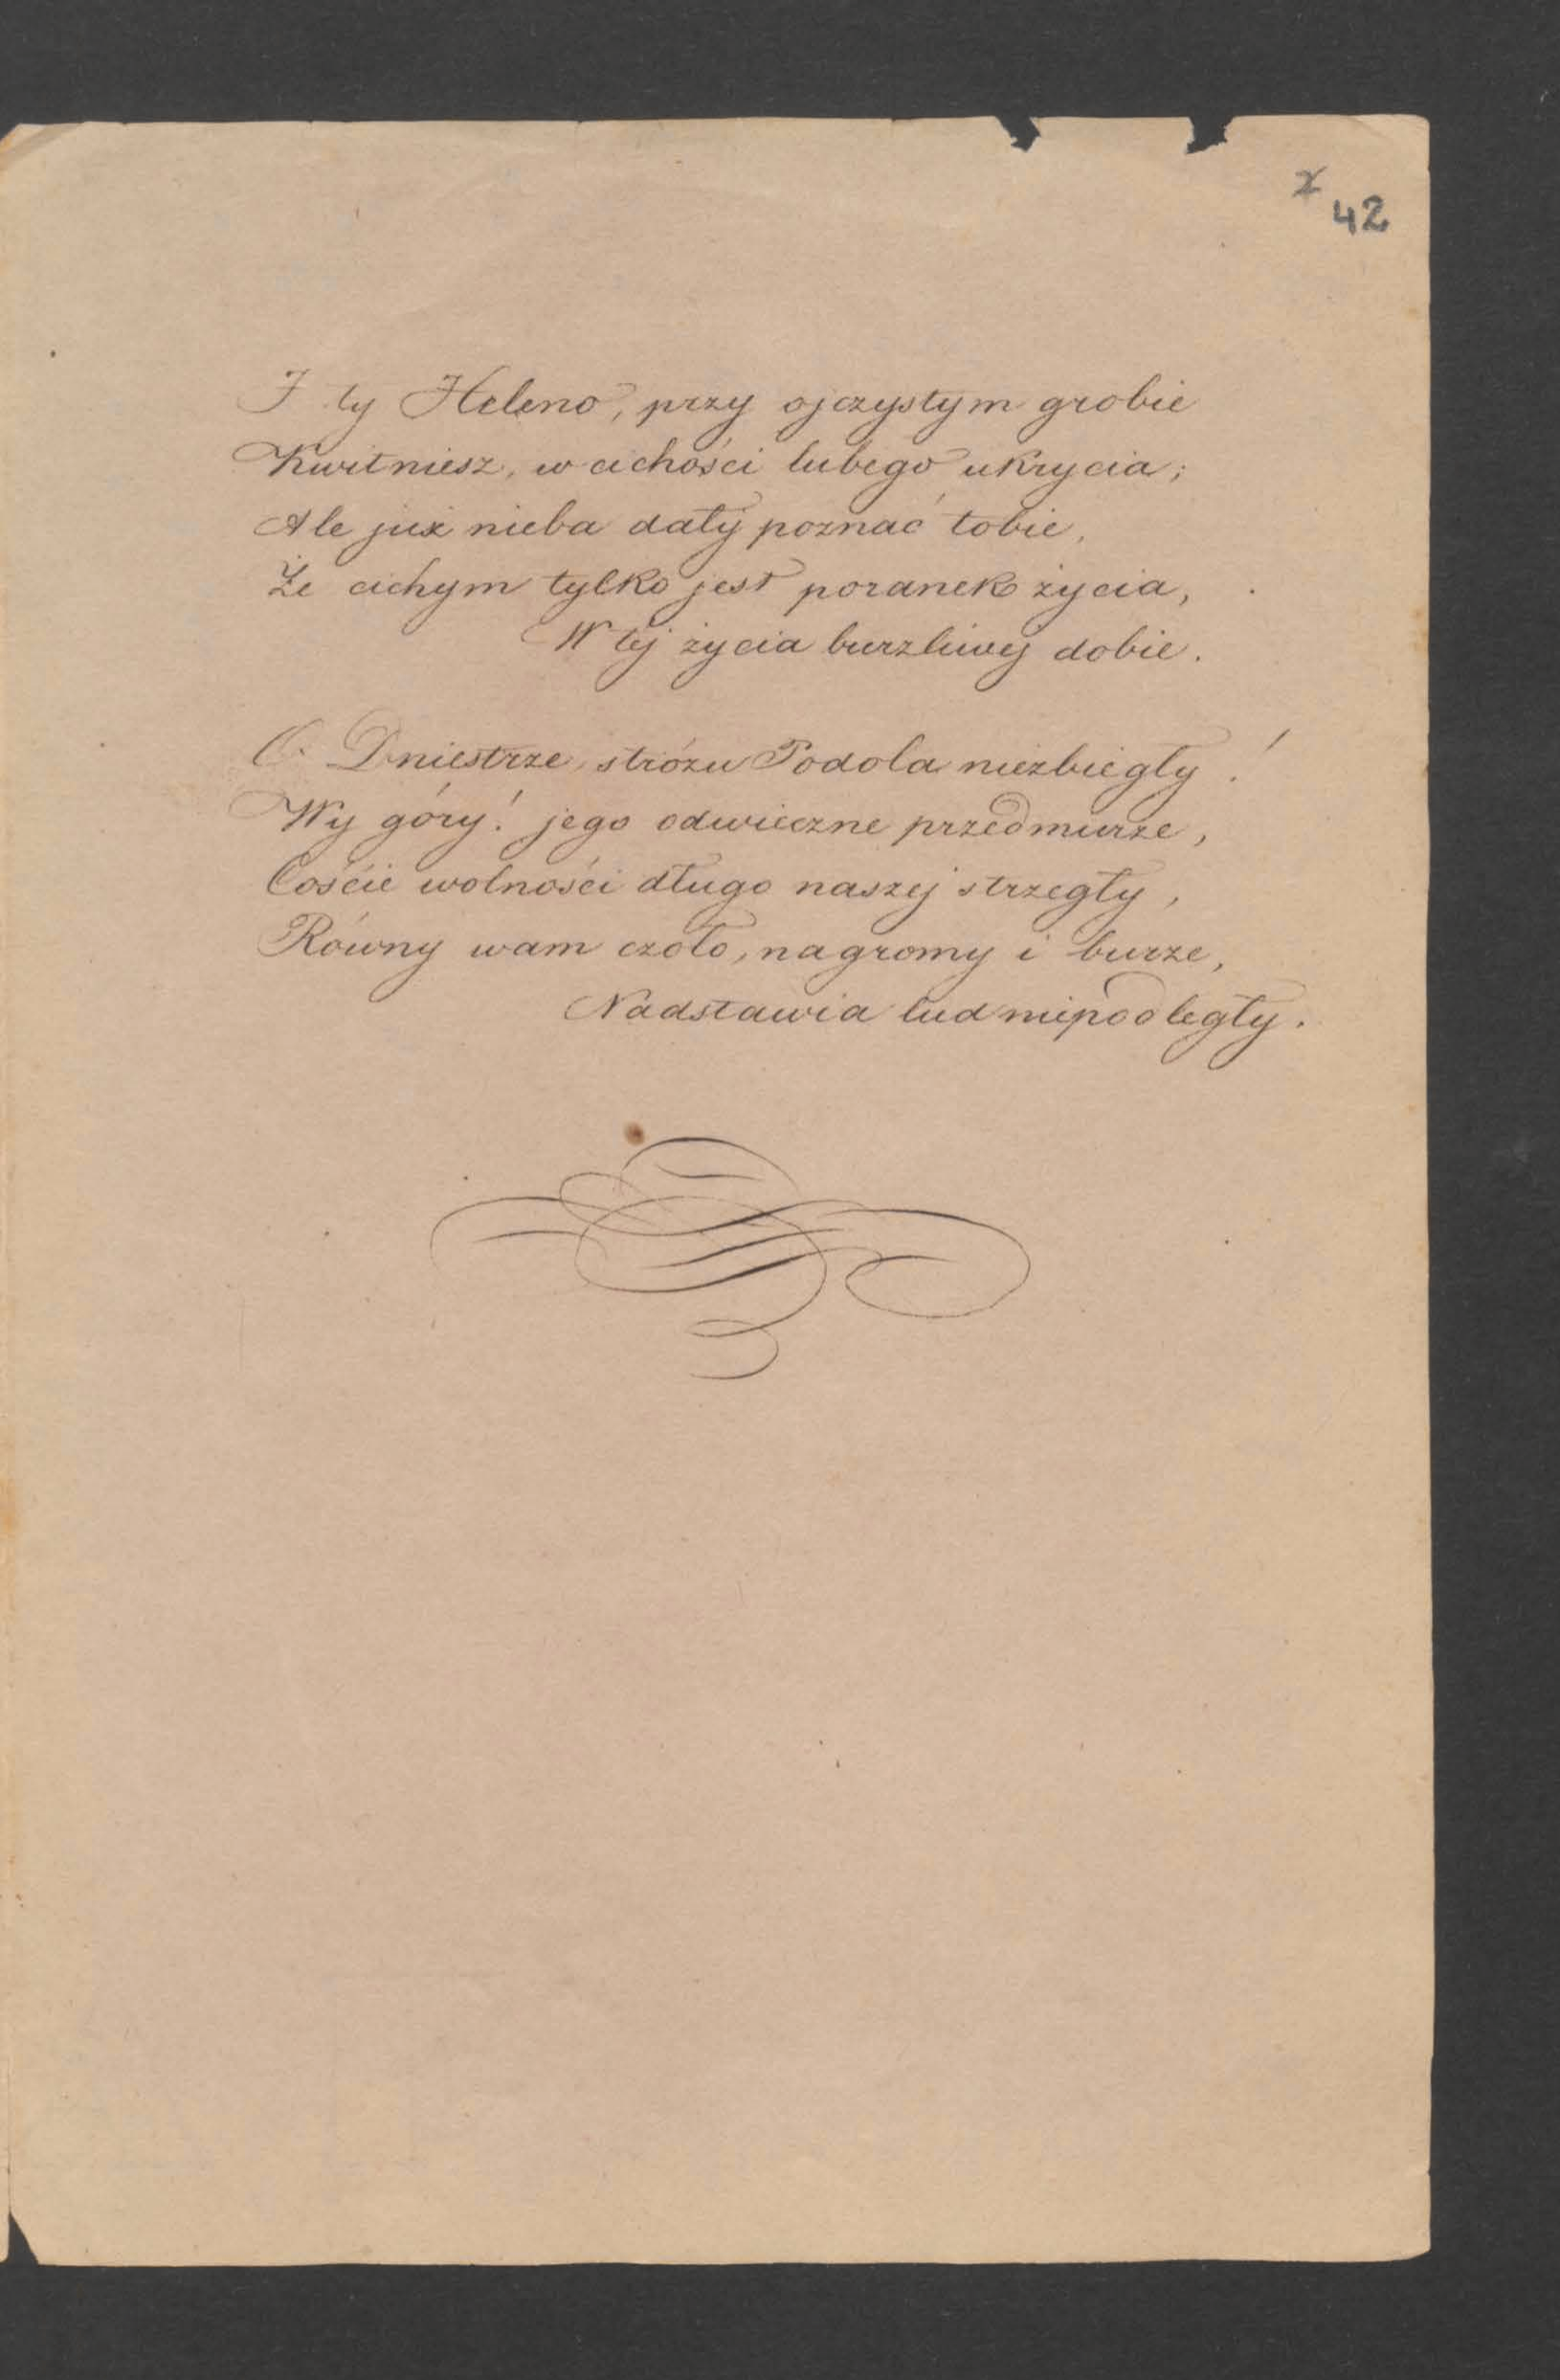 42
I ty Heleno, przy ojczystym grobie
Kwitniesz, w cichości lubego ukrycia;
Ale już nieba dały poznać tobie,
Że cichym tylko jest poranek życia,
W tej życia burzliwej dobie.
O Dniestrze, stróżu Podola niezbiegły!
Wy góry! jego odwieczne przedmurze,
Coście wolności długo naszej strzegły,
Równy wam czoło, na gromy i burze,
Nadstawia lud niepodległy.